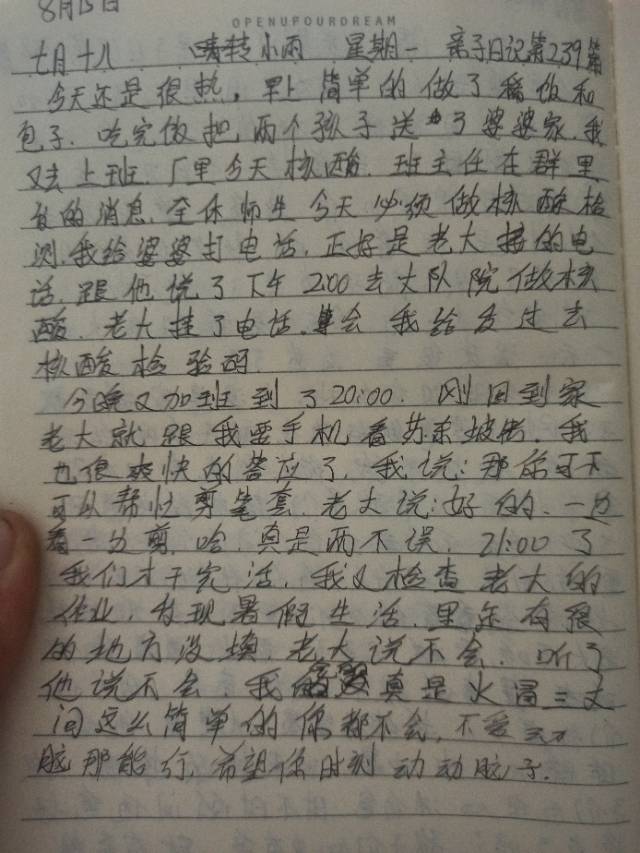 8月15日
OPENUPOURDREAM
七月十八 晴转小雨 星期一 亲子日记第239篇
今天还是很热，早上简单的做了稀饭和
包子.吃完饭把两个孩子送到了婆婆家.我
又去上班.厂里今天核酸.班主任在群里
发的消息.全体师生今天必须做核酸检
测.我给婆婆打电话.正好是老大接的电
话.跟他说了下午2:00去大队院做核
酸.老大挂了电话.会我给发过去
核酸检验码.
今晚又加班到了20:00.刚回到家
老大就跟我要手机看苏东坡传.我
也很爽快的答应了.我说:那你可不
可以帮忙剪笔套.老大说:好的.一边
看一边剪.哈.真是两不误.21:00了
我们才干完活.我又检查老大的
作业.发现暑假生活.里还有很
的地方没填.老大说不会.听了
他说不会.我真是火冒三丈
问这么简单的你都不会.不爱动
脑那能行.希望你时刻动动脑子.